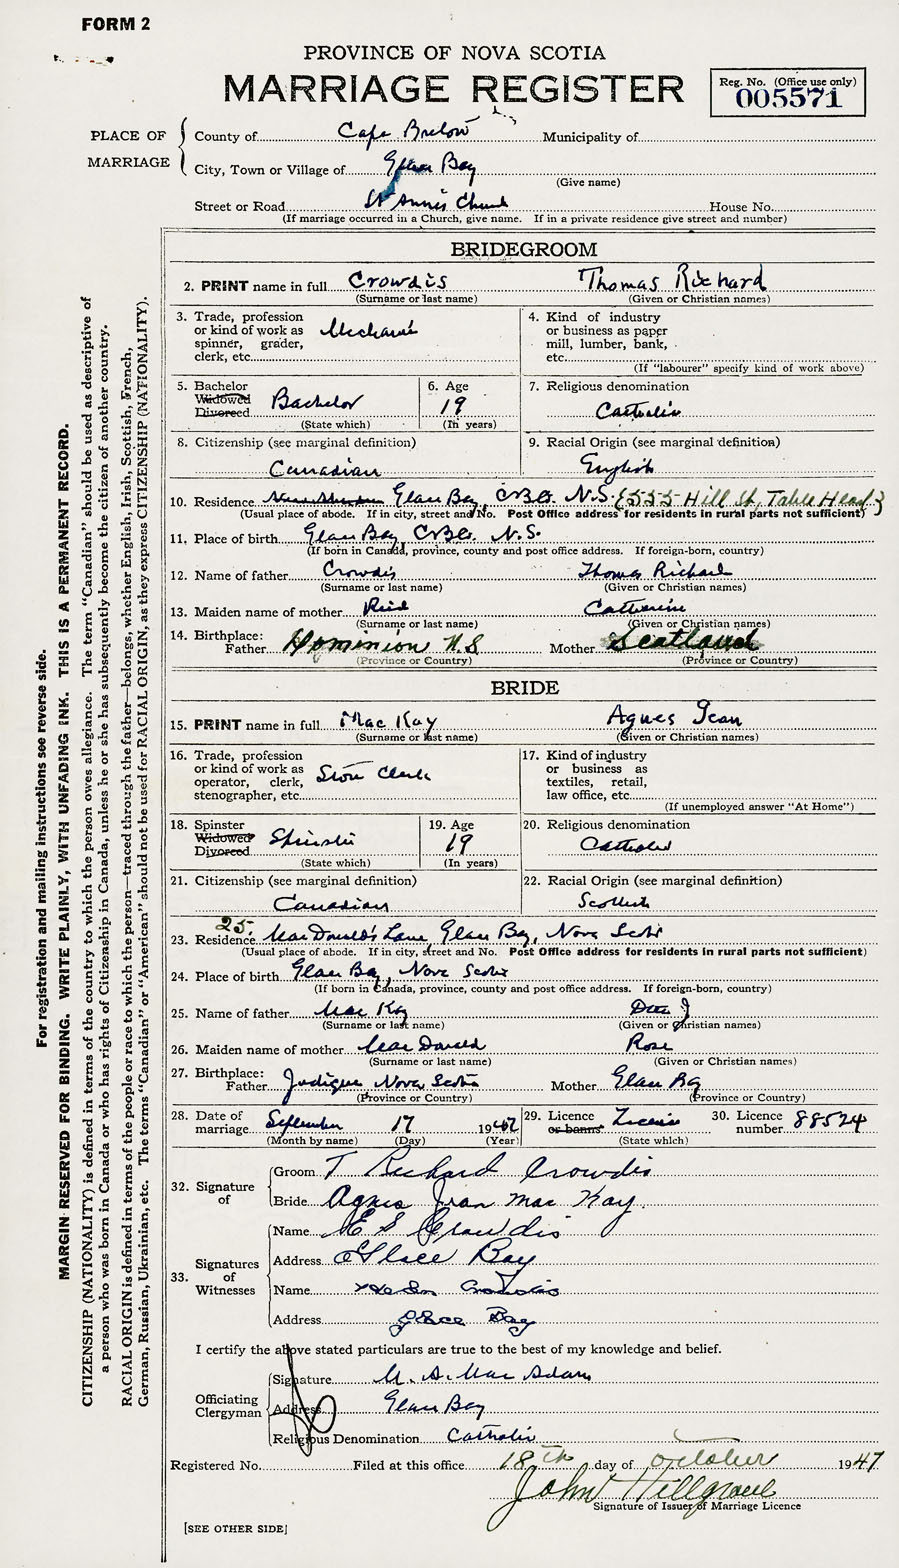 FORM 2
PROVINCE OF NOVA SCOTIA
MARRIAGE REGISTER
Reg. No. (Office use only)
005571
PLACE OF MARRIAGE
County of Cape Breton Municipality of
City, Town or Village of Glace Bay
(Give name)
Street or Road St Anne's Church House No.
(If marriage occurred in a Church, give name. If in a private residence give street and number)
BRIDEGROOM
2. PRINT name in full Crowdis Thomas Richard
(Surname or last name) (Given or Christian names)
3. Trade, profession or kind of work as spinner, grader, clerk, etc. Mechanic
4. Kind of industry or business as paper mill, lumber, bank, etc.
(If "labourer" specify kind of work above)
5. Bachelor Widowed Divorced Bachelor
(State which)
6. Age 19
(In years)
7. Religious denomination
Catholic
8. Citizenship (see marginal definition)
Canadian
9. Racial Origin (see marginal definition)
English
10. Residence Glace Bay, C.B. N.S. {555 Hill St, Table Head}
(Usual place of abode. If in city, street and No. Post Office address for residents in rural parts not sufficient)
11. Place of birth Glace Bay, C.B. N.S.
(If born in Canada, province, county and post office address. If foreign-born, country)
12. Name of father Crowdis Thomas Richard
(Surname or last name) (Given or Christian names)
13. Maiden name of mother Reid Catherine
(Surname or last name) (Given or Christian names)
14. Birthplace: Father Dominion N.S Mother Scotland
(Province or Country) (Province or Country)
BRIDE
15. PRINT name in full Mac Kay Agnes Jean
(Surname or last name) (Given or Christian names)
16. Trade, profession or kind of work as operator, clerk, stenographer, etc. Store Clerk
17. Kind of industry or business as textiles, retail, law office, etc.
(If unemployed answer "At Home")
18. Spinster Widowed Divorced Spinster
(State which)
19. Age 19
(In years)
20. Religious denomination
Catholic
21. Citizenship (see marginal definition)
Canadian
22. Racial Origin (see marginal definition)
Scottish
25.
23. Residence MacDonald's Lane, Glace Bay, Nova Scotia
(Usual place of abode. If in city, street and No. Post Office address for residents in rural parts not sufficient)
24. Place of birth Glace Bay, Nova Scotia
(If born in Canada, province, county and post office address. If foreign-born, country)
25. Name of father Mac Kay Dan J
(Surname or last name) (Given or Christian names)
26. Maiden name of mother MacDonald Rose
(Surname or last name) (Given or Christian names)
27. Birthplace: Father Judique Nova Scotia Mother Glace Bay
(Province or Country) (Province or Country)
28. Date of marriage September 17 1947
(Month by name) (Day) (Year)
29. Licence or banns Licence
(State which)
30. Licence number 88524
32. Signature of
Groom T Richard Crowdis
Bride Agnes Jean Mac Kay.
33. Signatures of Witnesses
Name E S Crowdis
Address Glace Bay
Name Crowdis
Address Glace Bay
I certify the above stated particulars are true to the best of my knowledge and belief.
Officiating Clergyman
Signature M. A. MacAdam
Address Glace Bay
Religious Denomination Catholic
Registered No. Filed at this office 18th day of October 1947
John Hillgrove
Signature of Issuer of Marriage Licence
[SEE OTHER SIDE]
For registration and mailing instructions see reverse side.
MARGIN RESERVED FOR BINDING. WRITE PLAINLY, WITH UNFADING INK. THIS IS A PERMANENT RECORD.
CITIZENSHIP (NATIONALITY) is defined in terms of the country to which the person owes allegiance. The term "Canadian" should be used as descriptive of
a person who was born in Canada or who has rights of Citizenship in Canada, unless he or she has subsequently become the citizen of another country.
RACIAL ORIGIN is defined in terms of the people or race to which the person—traced through the father—belongs, whether English, Irish, Scottish, French,
German, Russian, Ukrainian, etc. The terms "Canadian" or "American" should not be used for RACIAL ORIGIN, as they express CITIZENSHIP (NATIONALITY).